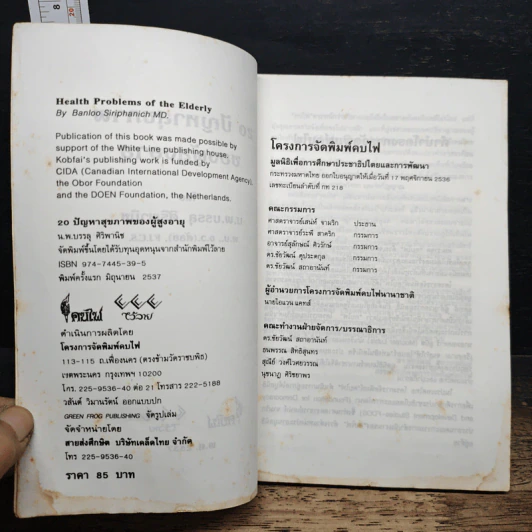 8
Health Problems of the Elderly
By Banloo Siriphanich MD.
Publication of this book was made possible by
support of the White Line publishing house,
Kobfai's publishing work is funded by
CIDA (Canadian International Development Agency),
the Obor Foundation
and the DOEN Foundation, the Netherlands.
20 ปัญหาสุขภาพของผู้สูงอายุ
น.พ.บรรลุ ศิริพานิช
จัดพิมพ์ขึ้นโดยได้รับทุนอุดหนุนจากสำนักพิมพ์ไว้ลาย
ISBN 974-7445-39-5
พิมพ์ครั้งแรก มิถุนายน 2537
คบไฟ
ไว้ลาย
ดำเนินการผลิตโดย
โครงการจัดพิมพ์คบไฟ
113-115 ถ.เฟื่องนคร (ตรงข้ามวัดราชบพิธ)
เขตพระนคร กรุงเทพฯ 10200
โทร. 225-9536-40 ต่อ 21 โทรสาร 222-5188
วสันต์ วิมานรัตน์ ออกแบบปก
GREEN FROG PUBLISHING จัดรูปเล่ม
จัดจำหน่ายโดย
สายส่งศึกษิต บริษัทเคล็ดไทย จำกัด
โทร 225-9536-40
ราคา 85 บาท
โครงการจัดพิมพ์คบไฟ
มูลนิธิเพื่อการศึกษาประชาธิปไตยและการพัฒนา
กระทรวงมหาดไทย ออกใบอนุญาตให้เมื่อวันที่ 17 พฤศจิกายน 2536
เลขทะเบียนลำดับที่ กท 218
คณะกรรมการ
ศาสตราจารย์เสน่ห์ จามริก ประธาน
ศาสตราจารย์ระพี สาคริก กรรมการ
อาจารย์สุลักษณ์ ศิวรักษ์ กรรมการ
ดร.ชัยวัฒน์ คุประตกุล กรรมการ
ดร.ชัยวัฒน์ สถาอานันท์ กรรมการ
ผู้อำนวยการโครงการจัดพิมพ์คบไฟนานาชาติ
นายไอแวน แคทส์
คณะทำงานฝ่ายจัดการ/บรรณาธิการ
ดร.ชัยวัฒน์ สถาอานันท์
ธนพรรณ สิทธิสุนทร
สุณีย์ วงศ์ไวศยวรรณ
นุชนาฎ ศิริชยาพร